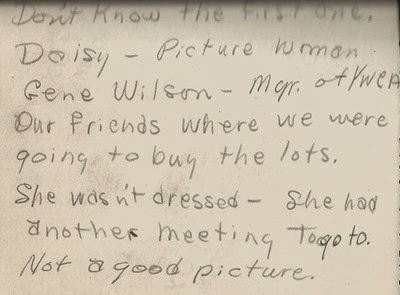 Don't Know the first one.
Daisy - Picture Woman
Gene Wilson - Mgr. of YWCA
Our friends where we were
going to buy the lots.
She wasn't dressed - She had
another meeting To go to.
Not a good picture.